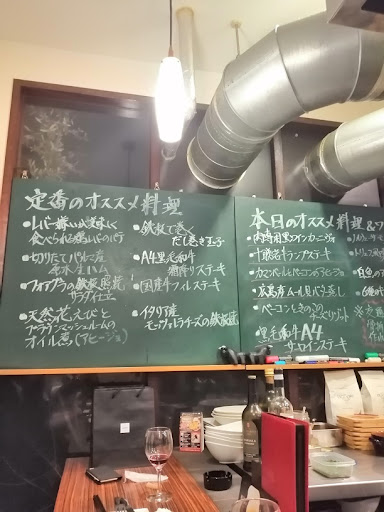 定番のオススメ料理
・レバー嫌いが美味しく
食べられる鶏レバーのパテ
・切りたてパルマ産
生ハム
・フォアグラの鉄板照焼
サラダ仕立
・天然花えびと
ブラウンマッシュルームの
オイル煮(アヒージョ)
・鉄板で巻く
だし巻き玉子
・A4黒毛和牛
霜降りステーキ
・国産牛フィレステーキ
・イタリア産
モッツァレラチーズの鉄板焼
本日のオススメ料理
ランプステーキ
・カマンベールとベーコンの
・広島産ムール貝バター蒸し
・ベーコンときのこの
チーズリゾット
・黒毛和牛A4
サーロインステーキ